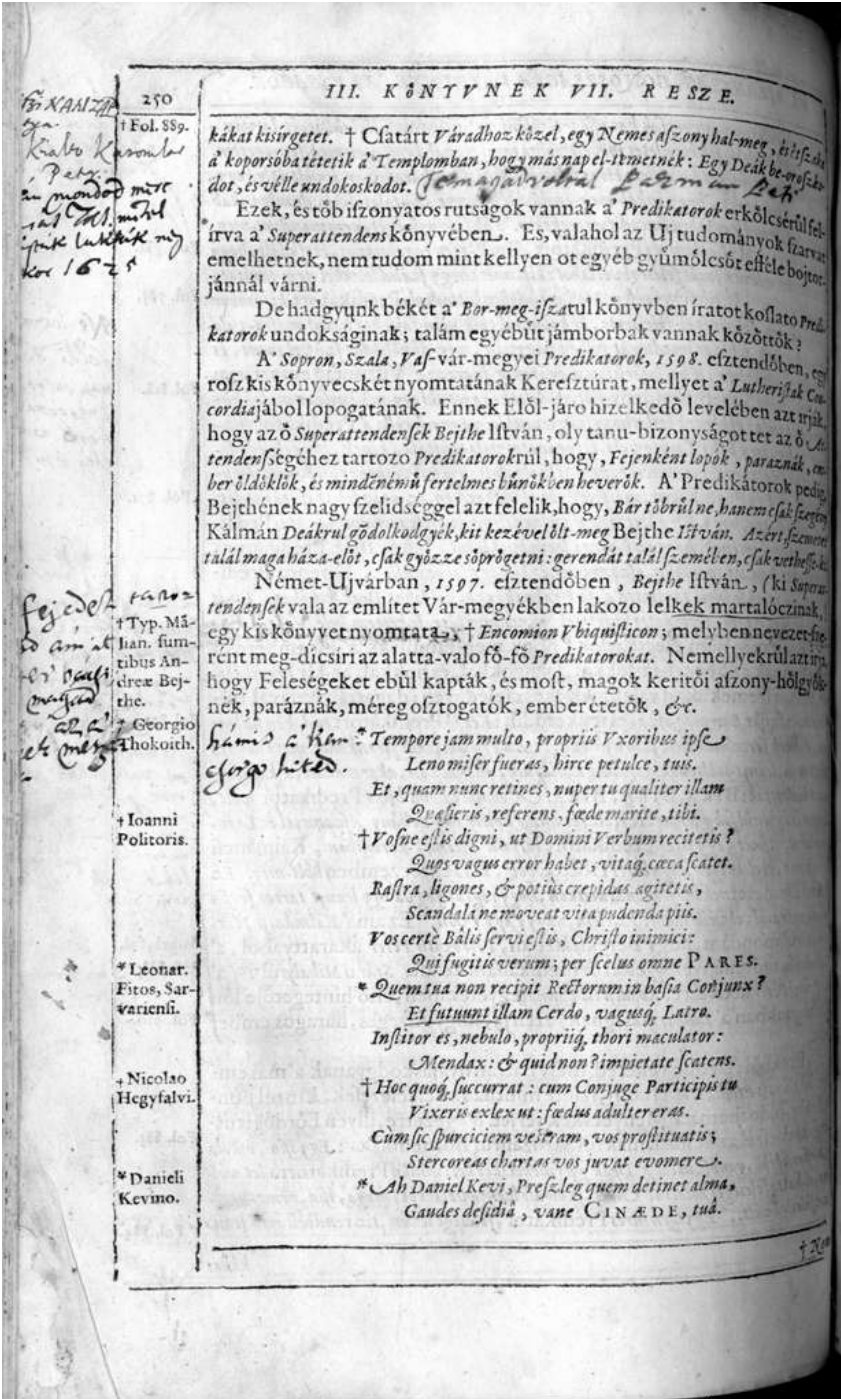 250
III. KŐNYVNEK VII. RESZE.
† Fol. 889.
kákat kisírgetet. † Csatárt Váradhoz kőzel, egy Nemes aſzony hal-meg, és éſzaka
a' koporsóba tétetik a' Templomban, hogy más nap el-temetnék: Egy Deák be-oroszko-
dot, és vélle undokoskodot.
Ezek, és tőb iſzonyatos rutságok vannak a' Predikatorok erkőlcsérűl fel-
írva a' Superattendens kőnyvében. Es, valahol az Uj tudományok ſzarvat
emelhetnek, nem tudom mint kellyen ot egyéb gyűmőlcsőt efféle bojtor-
jánnál várni.
De hadgyunk békét a' Bor-meg-iſzatul kőnyvben íratot koſlato Predi-
katorok undokságinak; talám egyebűt jámborbak vannak kőzőttők?
A' Sopron, Szala, Vaſ-vár-megyei Predikatorok, 1598. eſztendőben, egy
rosz kis kőnyvecskét nyomtatának Kereſztúrat, mellyet a' Lutheriſtak Con-
cordiajábol lopogatának. Ennek Elől-járo hizelkedő levelében azt irják,
hogy az ő Superattendenſek Bejthe Iſtván, oly tanu-bizonyságot tet az ő At-
tendenſségéhez tartozo Predikatorokrúl, hogy, Fejenként lopók, paraznák, em-
ber őldőklők, és mindénémű fertelmes bűnőkben heverők. A' Predikátorok pedig
Bejthének nagy ſzelidséggel azt felelik, hogy, Bár tőbrűl ne, hanem cſak ſzegény
Kálmán Deákrul gődolkodgyék, kit kezével őlt-meg Bejthe Iſtván. Azért, ſzemetet
talál maga háza-előt, cſak győzze sőprőgetni: gerendát talál ſzemében, cſak vetheſſe-ki.
Német-Ujvárban, 1597. eſztendőben, Bejthe Iſtván, (ki Superat-
tendenſek vala az említet Vár-megyékben lakozo lelkek martalóczinak,
egy kis kőnyvet nyomtata, † Encomion Ubiquiſticon; melyben nevezet-ſze-
rént meg-dícsíri az alatta-valo fő-fő Predikatorokat. Nemellyekrűl azt irja,
hogy Feleségeket ebűl kapták, és moſt, magok keritői aſzony-hőlgyők-
nek, paráznák, méreg oſztogatók, ember étetők, &c.
† Typ. Má-
lian. ſum-
tibus An-
dreæ Bej-
the.
† Georgio
Thokoith.
Tempore jam multo, propriis Vxoribus ipſe
Leno miſer fueras, hirce petulce, tuis.
Et, quam nunc retines, nuper tu qualiter illam
Quæſieris, referens, fœde marite, tibi.
† Ioanni
Politoris.
† Voſne eſtis digni, ut Domini Verbum recitetis?
Quos vagus error habet, vitaq́, cœca ſcatet.
Raſtra, ligones, & potiùs crepidas agitetis,
Scandala ne moveat vita pudenda piis.
Vos certè Bális ſervi eſtis, Chriſto inimici:
Qui fugitis verum; per ſcelus omne PARES.
* Leonar.
Fitos, Sar-
varienſi.
* Quem tua non recipit Rectorum in baſia Conjunx?
Et futuunt illam Cerdo, vagusq́, Latro.
Inſtitor es, nebulo, propriiq́, thori maculator:
Mendax: & quid non? impietate ſcatens.
† Nicolao
Hegyfalvi.
† Hoc quoq́, ſuccurrat: cum Conjuge Participis tu
Vixeris exlex ut: fœdus adulter eras.
Cùm ſic ſpurciciem veſtram, vos proſtituatis;
Stercoreas chartas vos juvat evomere.
* Danieli
Kevino.
* Ah Daniel Kevi, Preſzleg quem detinet alma,
Gaudes deſidiâ, vane CINÆDE, tuâ.